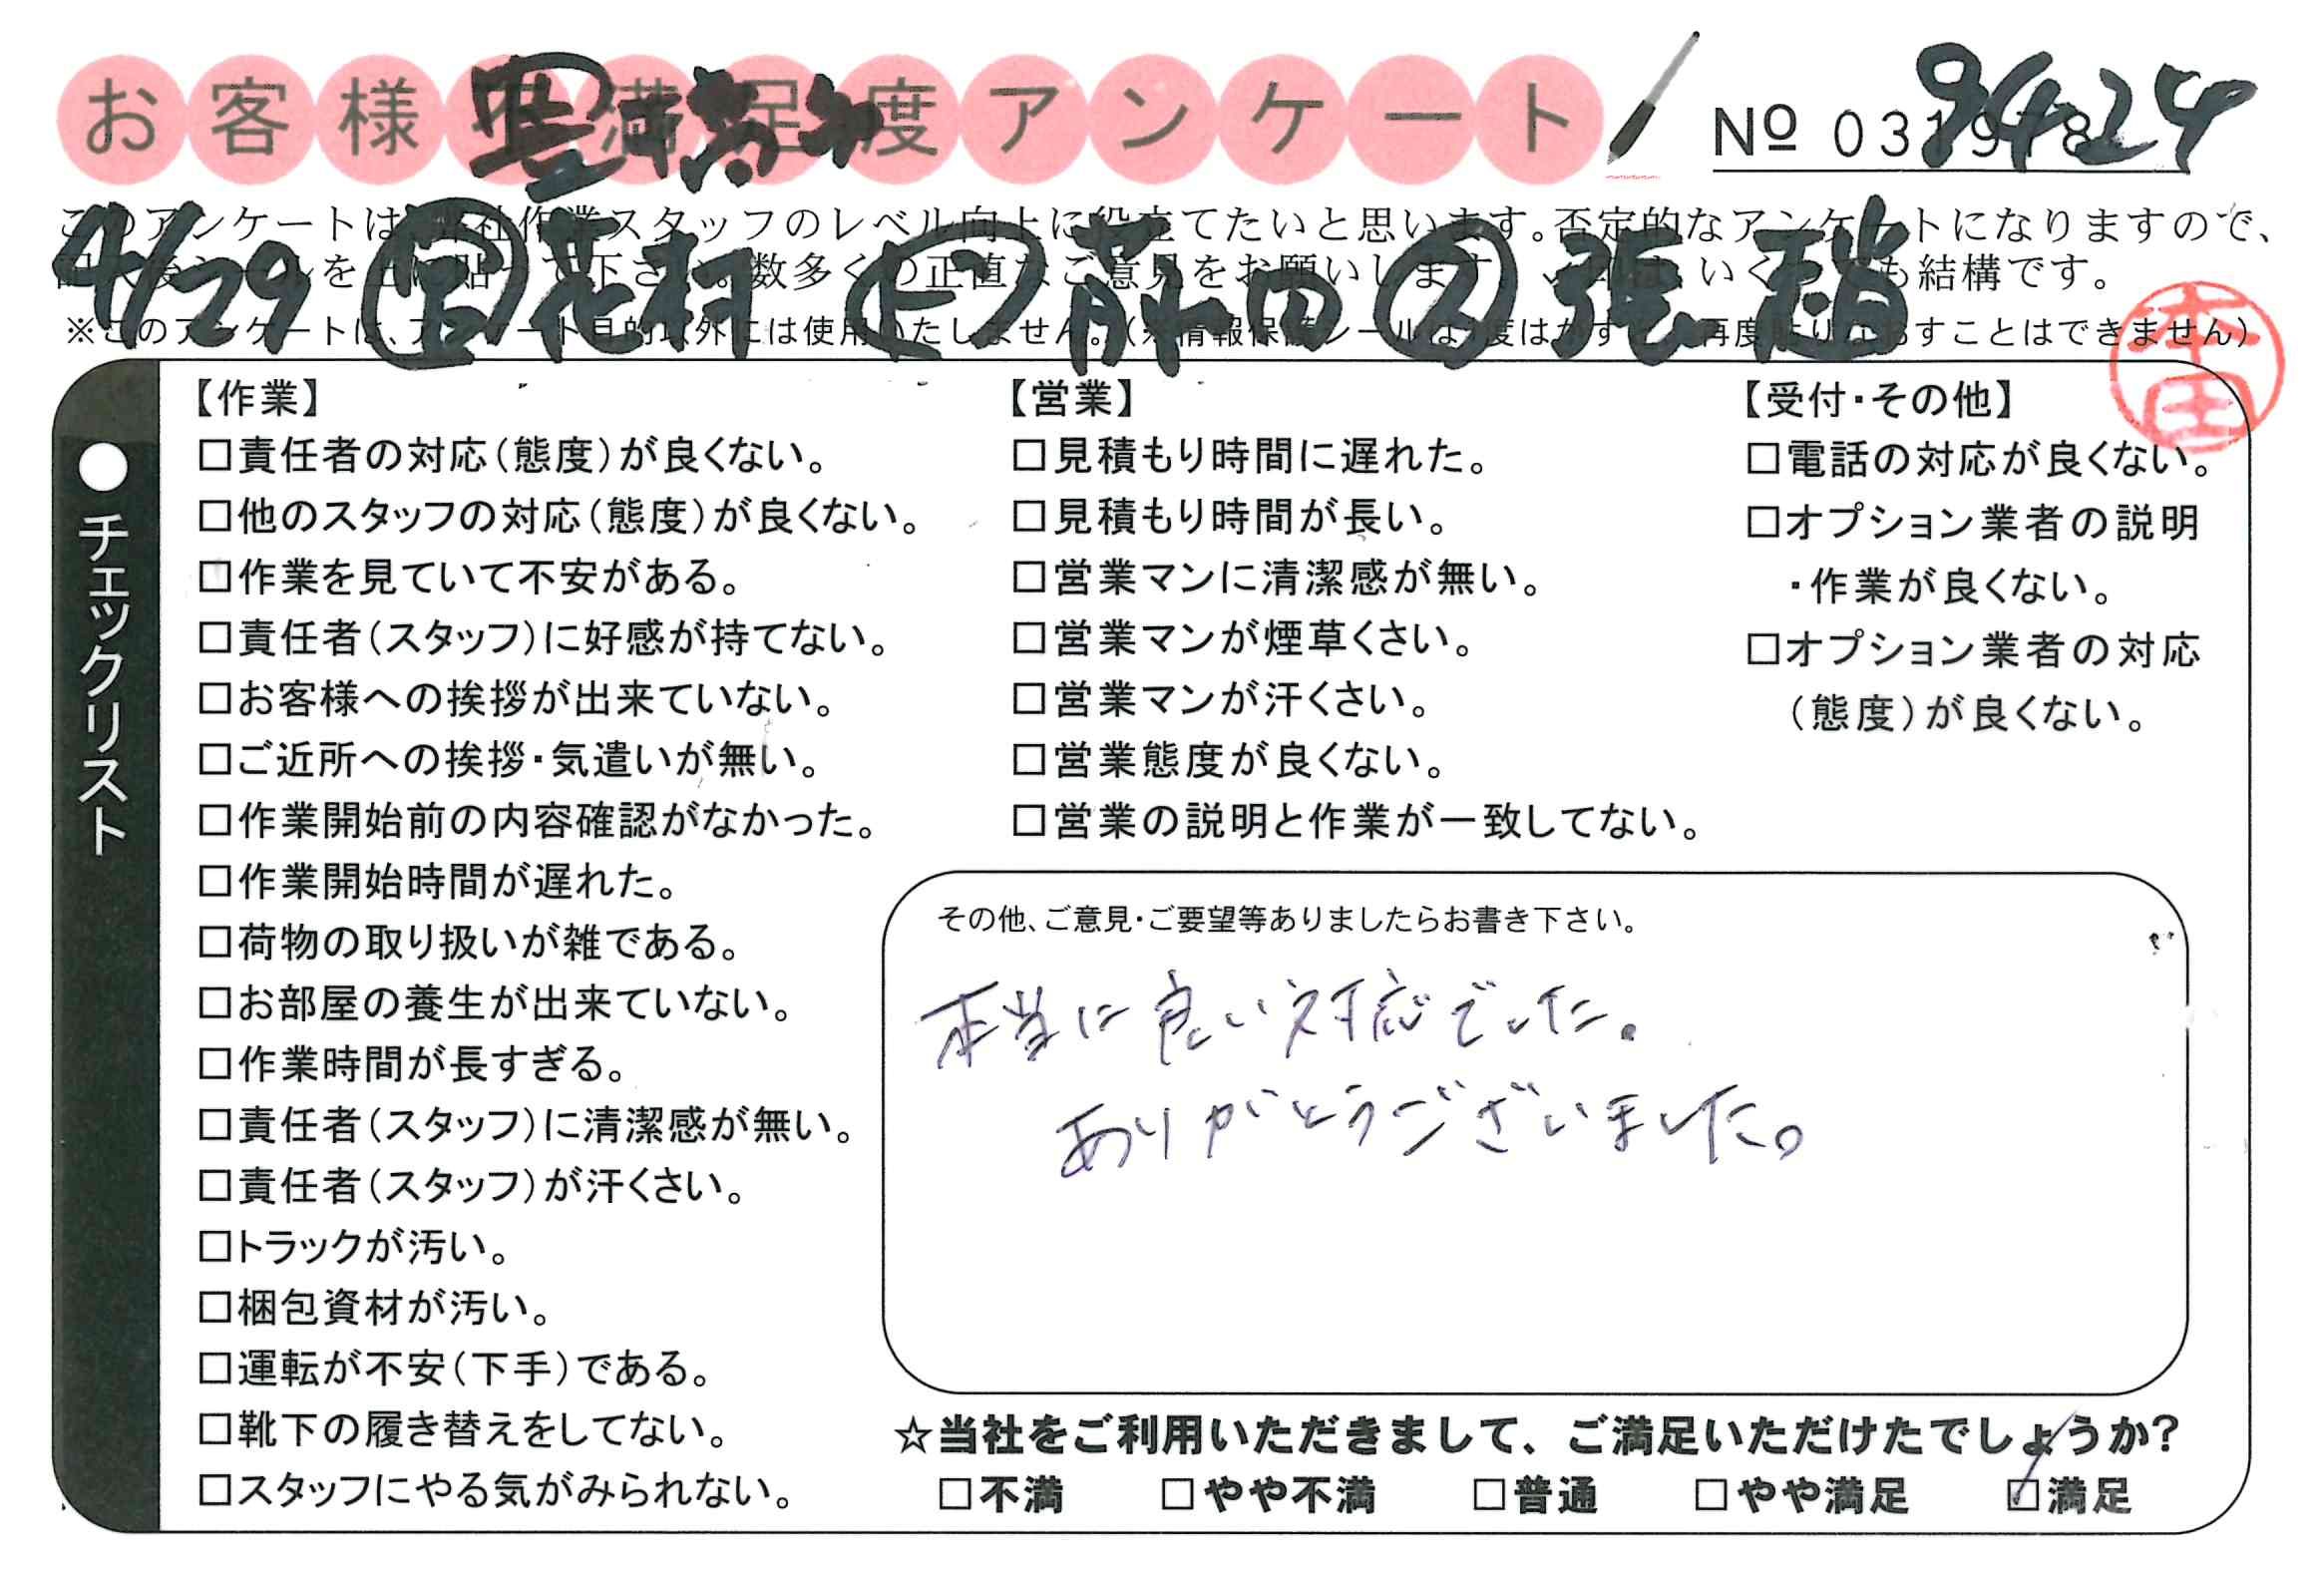 お客様不満足度アンケート
№ 031978
9424
このアンケートは、弊社作業スタッフのレベル向上に役立てたいと思います。否定的なアンケートになりますので、
を 下さい。数多くの正直なご意見をお願いします。 いくつでも結構です。
4/29 花村 前田 張 趙
※このアンケートは、アンケート目的以外には使用いたしません。(※情報保護シールは1度はがすと、再度貼りなおすことはできません)
本田
●チェックリスト
【作業】
□責任者の対応(態度)が良くない。
□他のスタッフの対応(態度)が良くない。
□作業を見ていて不安がある。
□責任者(スタッフ)に好感が持てない。
□お客様への挨拶が出来ていない。
□ご近所への挨拶・気遣いが無い。
□作業開始前の内容確認がなかった。
□作業開始時間が遅れた。
□荷物の取り扱いが雑である。
□お部屋の養生が出来ていない。
□作業時間が長すぎる。
□責任者(スタッフ)に清潔感が無い。
□責任者(スタッフ)が汗くさい。
□トラックが汚い。
□梱包資材が汚い。
□運転が不安(下手)である。
□靴下の履き替えをしてない。
□スタッフにやる気がみられない。
【営業】
□見積もり時間に遅れた。
□見積もり時間が長い。
□営業マンに清潔感が無い。
□営業マンが煙草くさい。
□営業マンが汗くさい。
□営業態度が良くない。
□営業の説明と作業が一致してない。
【受付・その他】
□電話の対応が良くない。
□オプション業者の説明
・作業が良くない。
□オプション業者の対応
(態度)が良くない。
その他、ご意見・ご要望等ありましたらお書き下さい。
本当に良い対応でした。
ありがとうございました。
☆当社をご利用いただきまして、ご満足いただけたでしょうか?
□不満 □やや不満 □普通 □やや満足 ☑満足